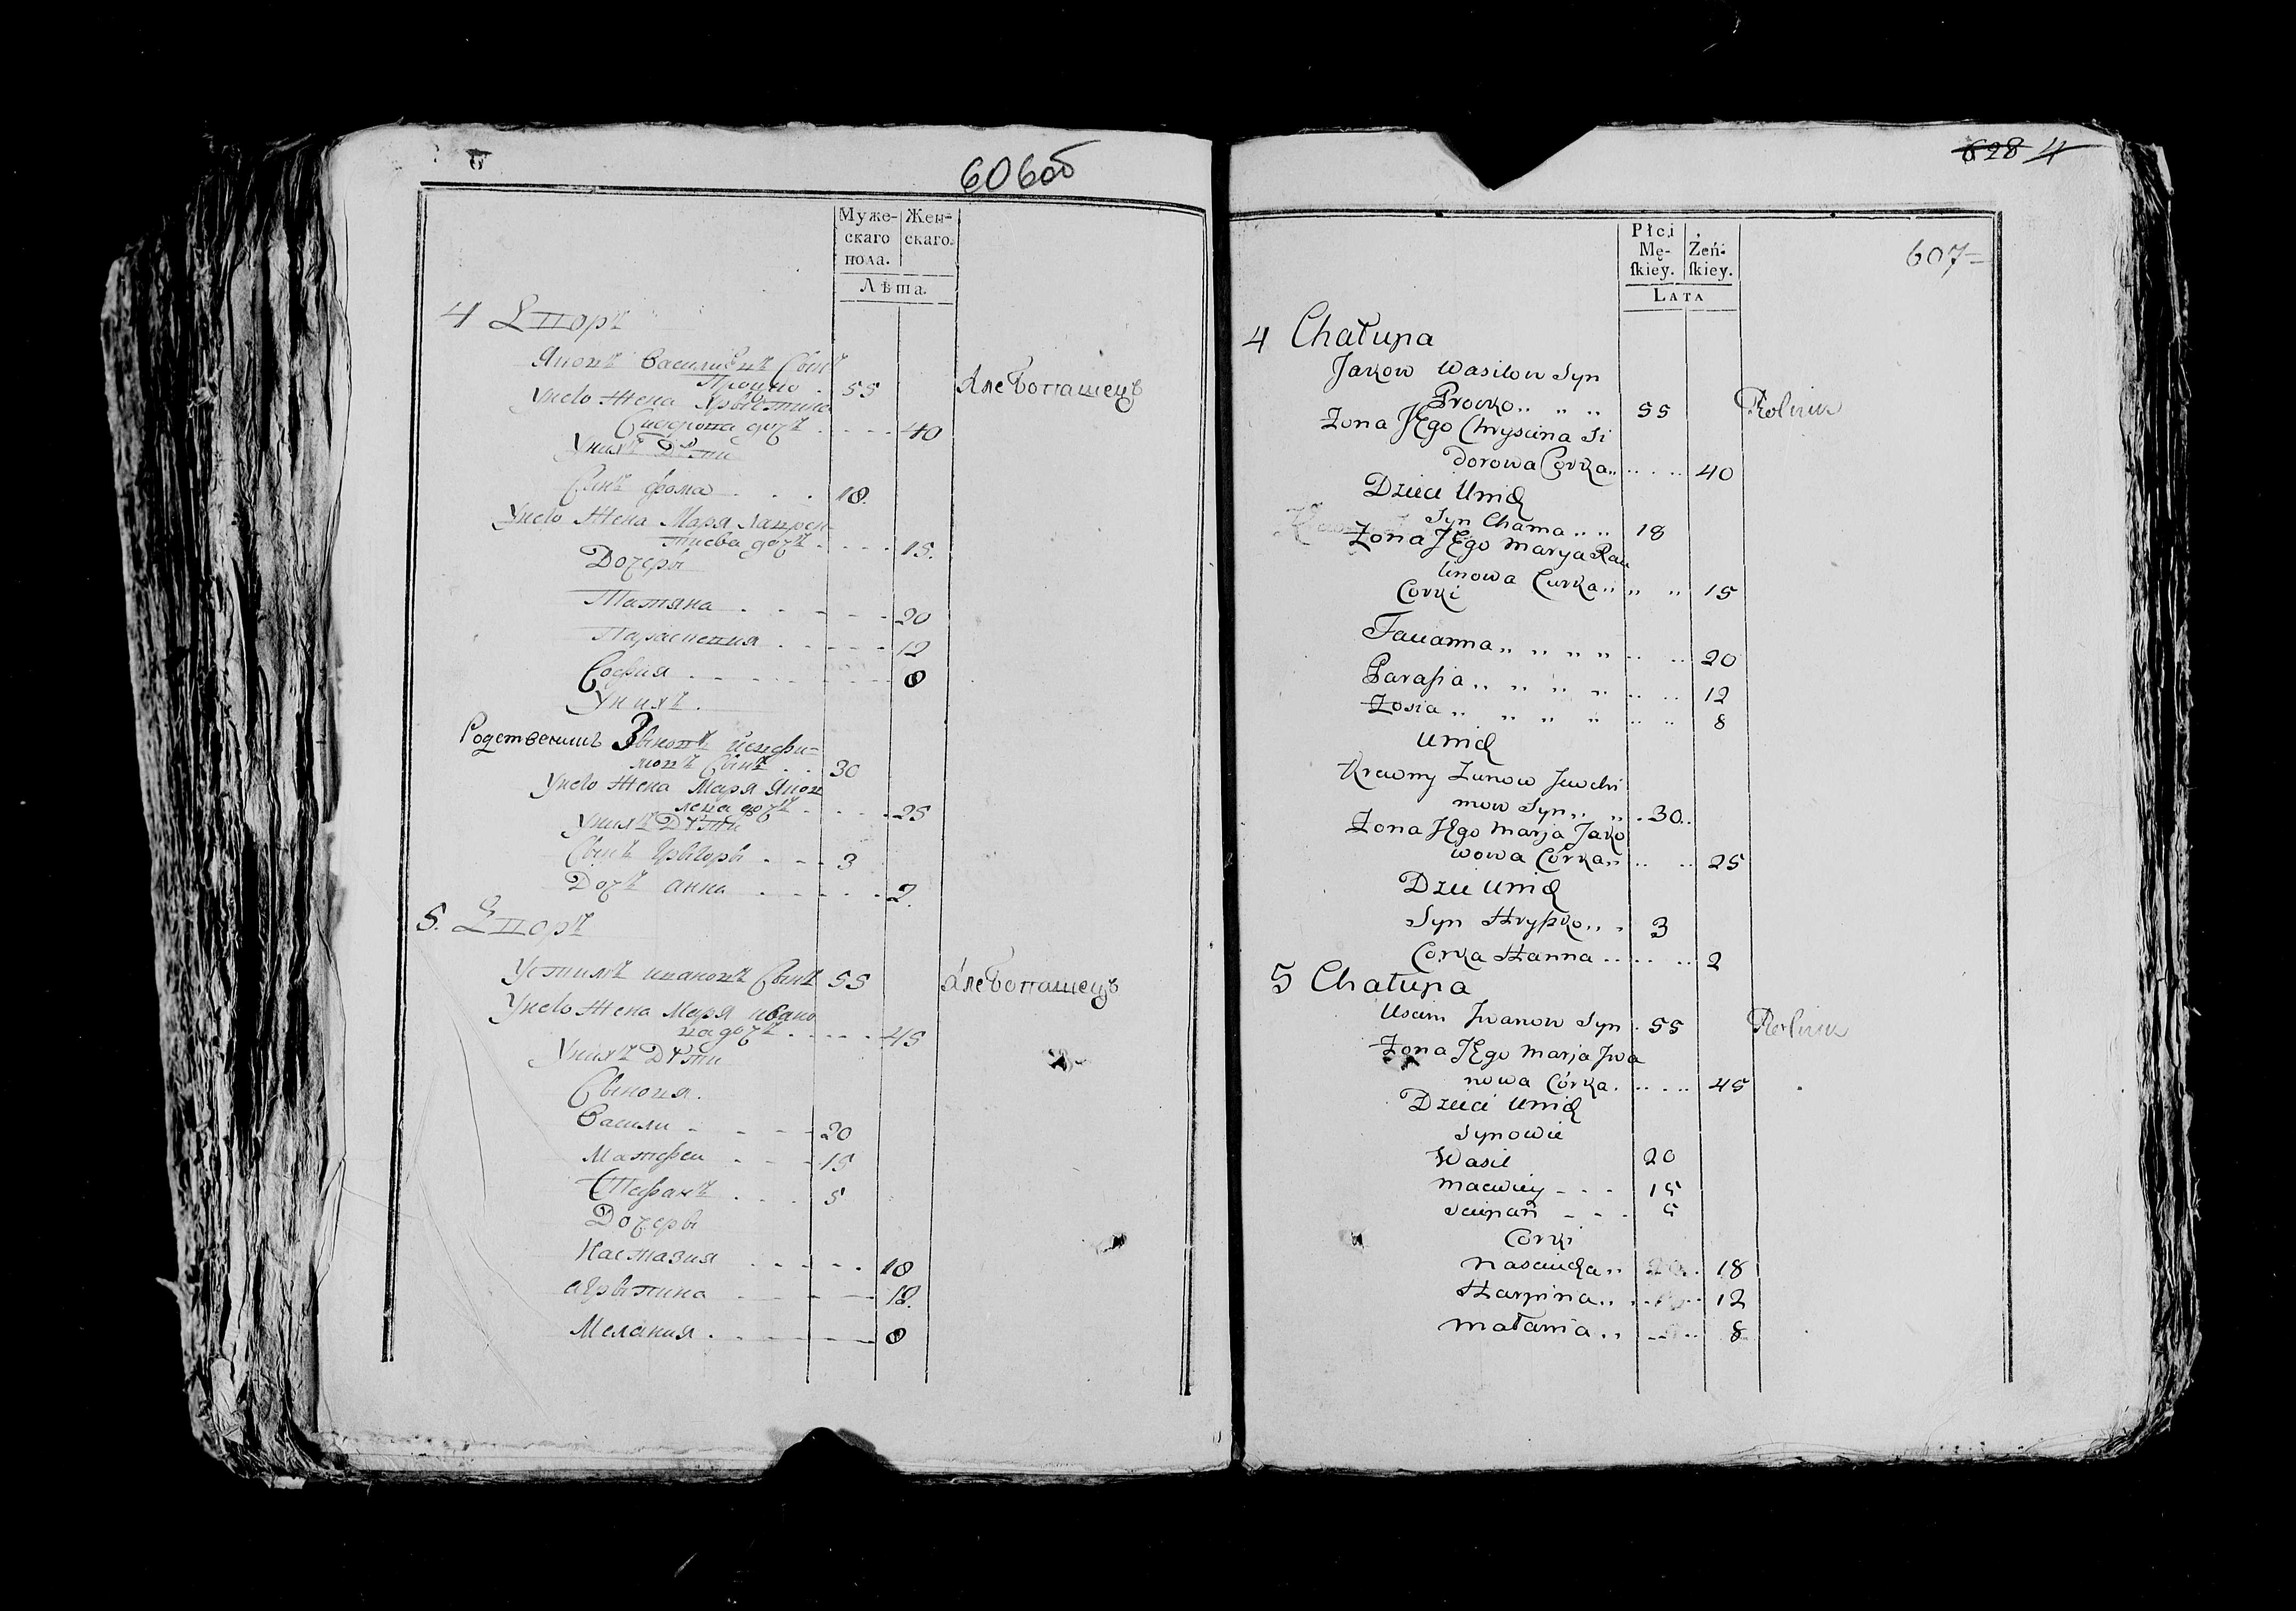 606об
Муже-
скаго
пола.
Жен-
скаго.
Лѣта.
4 Двор
Яков Василиев Сын
Процко . 55
Алебопашецъ
У него Жена Хрыстина
Сидорова доч . - - - 40
У них Дѣти
Син фома . . . 18.
У него Жена Маря
доч . - - - 15.
Дочеры
Татяна . - - - - 20
Параскевия . - - - - 12
София . - - - - - 8
У них .
Родственикъ Зынов
мов Сын . . 30
У него Жена Маря Яков
лева доч . - - - 25
У них Дѣти
Сын Грыгоры . - - 3
Доч анна . - - - - 2.
5. Двор
Устим иванов Сын 55
Алебопашецъ
У него Жена Маря ивано
ва доч . - - - - 45
У них Дѣти
Сыновя .
Васили - - - - 20
Матфеи - - - 15
Стефан . . . 5
Дочеры
Настазия . - - - - 18
агрыпина - - - - 12.
Мелания . - - - - - 8
628 4
607=
Płci
Mę-
ſkiey.
Żeń-
ſkiey.
LATA
4 Chałupa
Jakow Wasilow Syn
Procko.. .. .. 55
Rolnik
Żona JEgo Chryscina Si
dorowa Corka.. .. .. 40
Dzieci Unich
Syn Chama .. .. 18
Żona JEgo Marya
Curka .. .. .. 15
Corki
Tacianna .. .. .. .. .. .. 20
Paraſia .. .. .. .. .. .. 12
Zosia .. .. .. .. .. .. 8
Unich
Krewny Zunow Juchi
mow Syn .. .. . 30..
Żona JEgo Marja Jako
wowa Córka .. .. .. 25
Dzie Unich
Syn Hryſzko .. . 3
Corka Hanna .. .. .. 2
5 Chałupa
Uscim Jwanow Syn . 55
Rolnik
Żona JEgo Marja Jwa
nowa Córka . .. .. 45
Dzieci Unich
Synowie
Wasil 20
Maciwiey - - - 15
Sciepan - - - 5
Corki
Nasciucha .. .. 18
Harpina .. .. .. 12
Małania .. .. .. 8